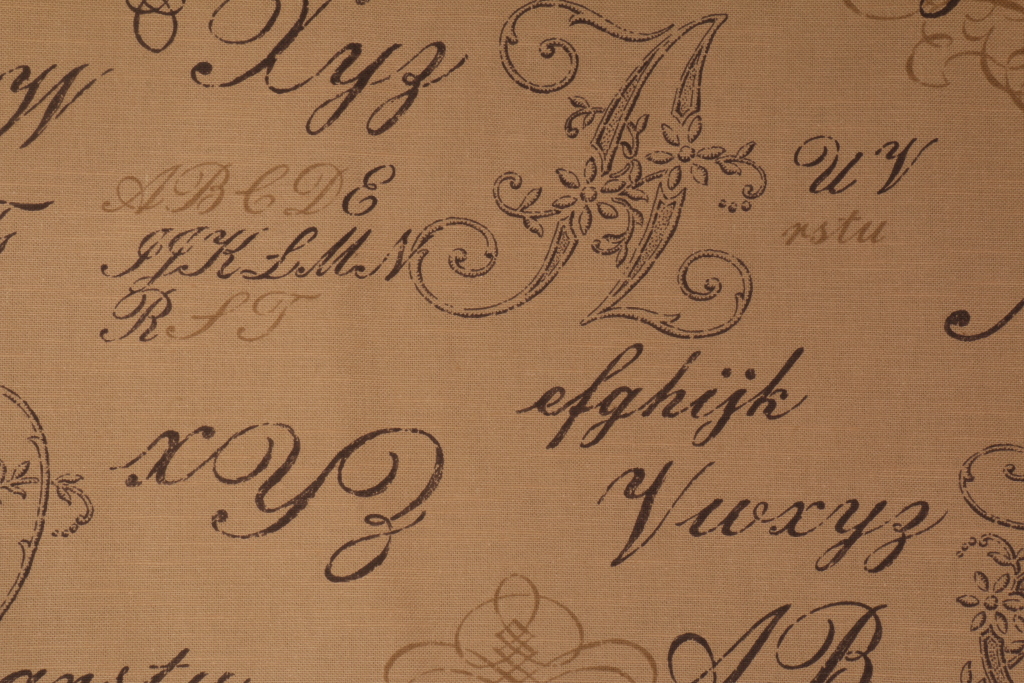 Xyz
W
A
UV
rstu
ABCDE
IJKLMN
R S T
efghijk
xYZ
Vwxyz
AB
qrstu